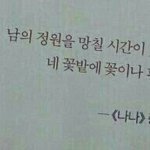 남의 정원을 망칠 시간이
네 꽃밭에 꽃이나
—《나나》